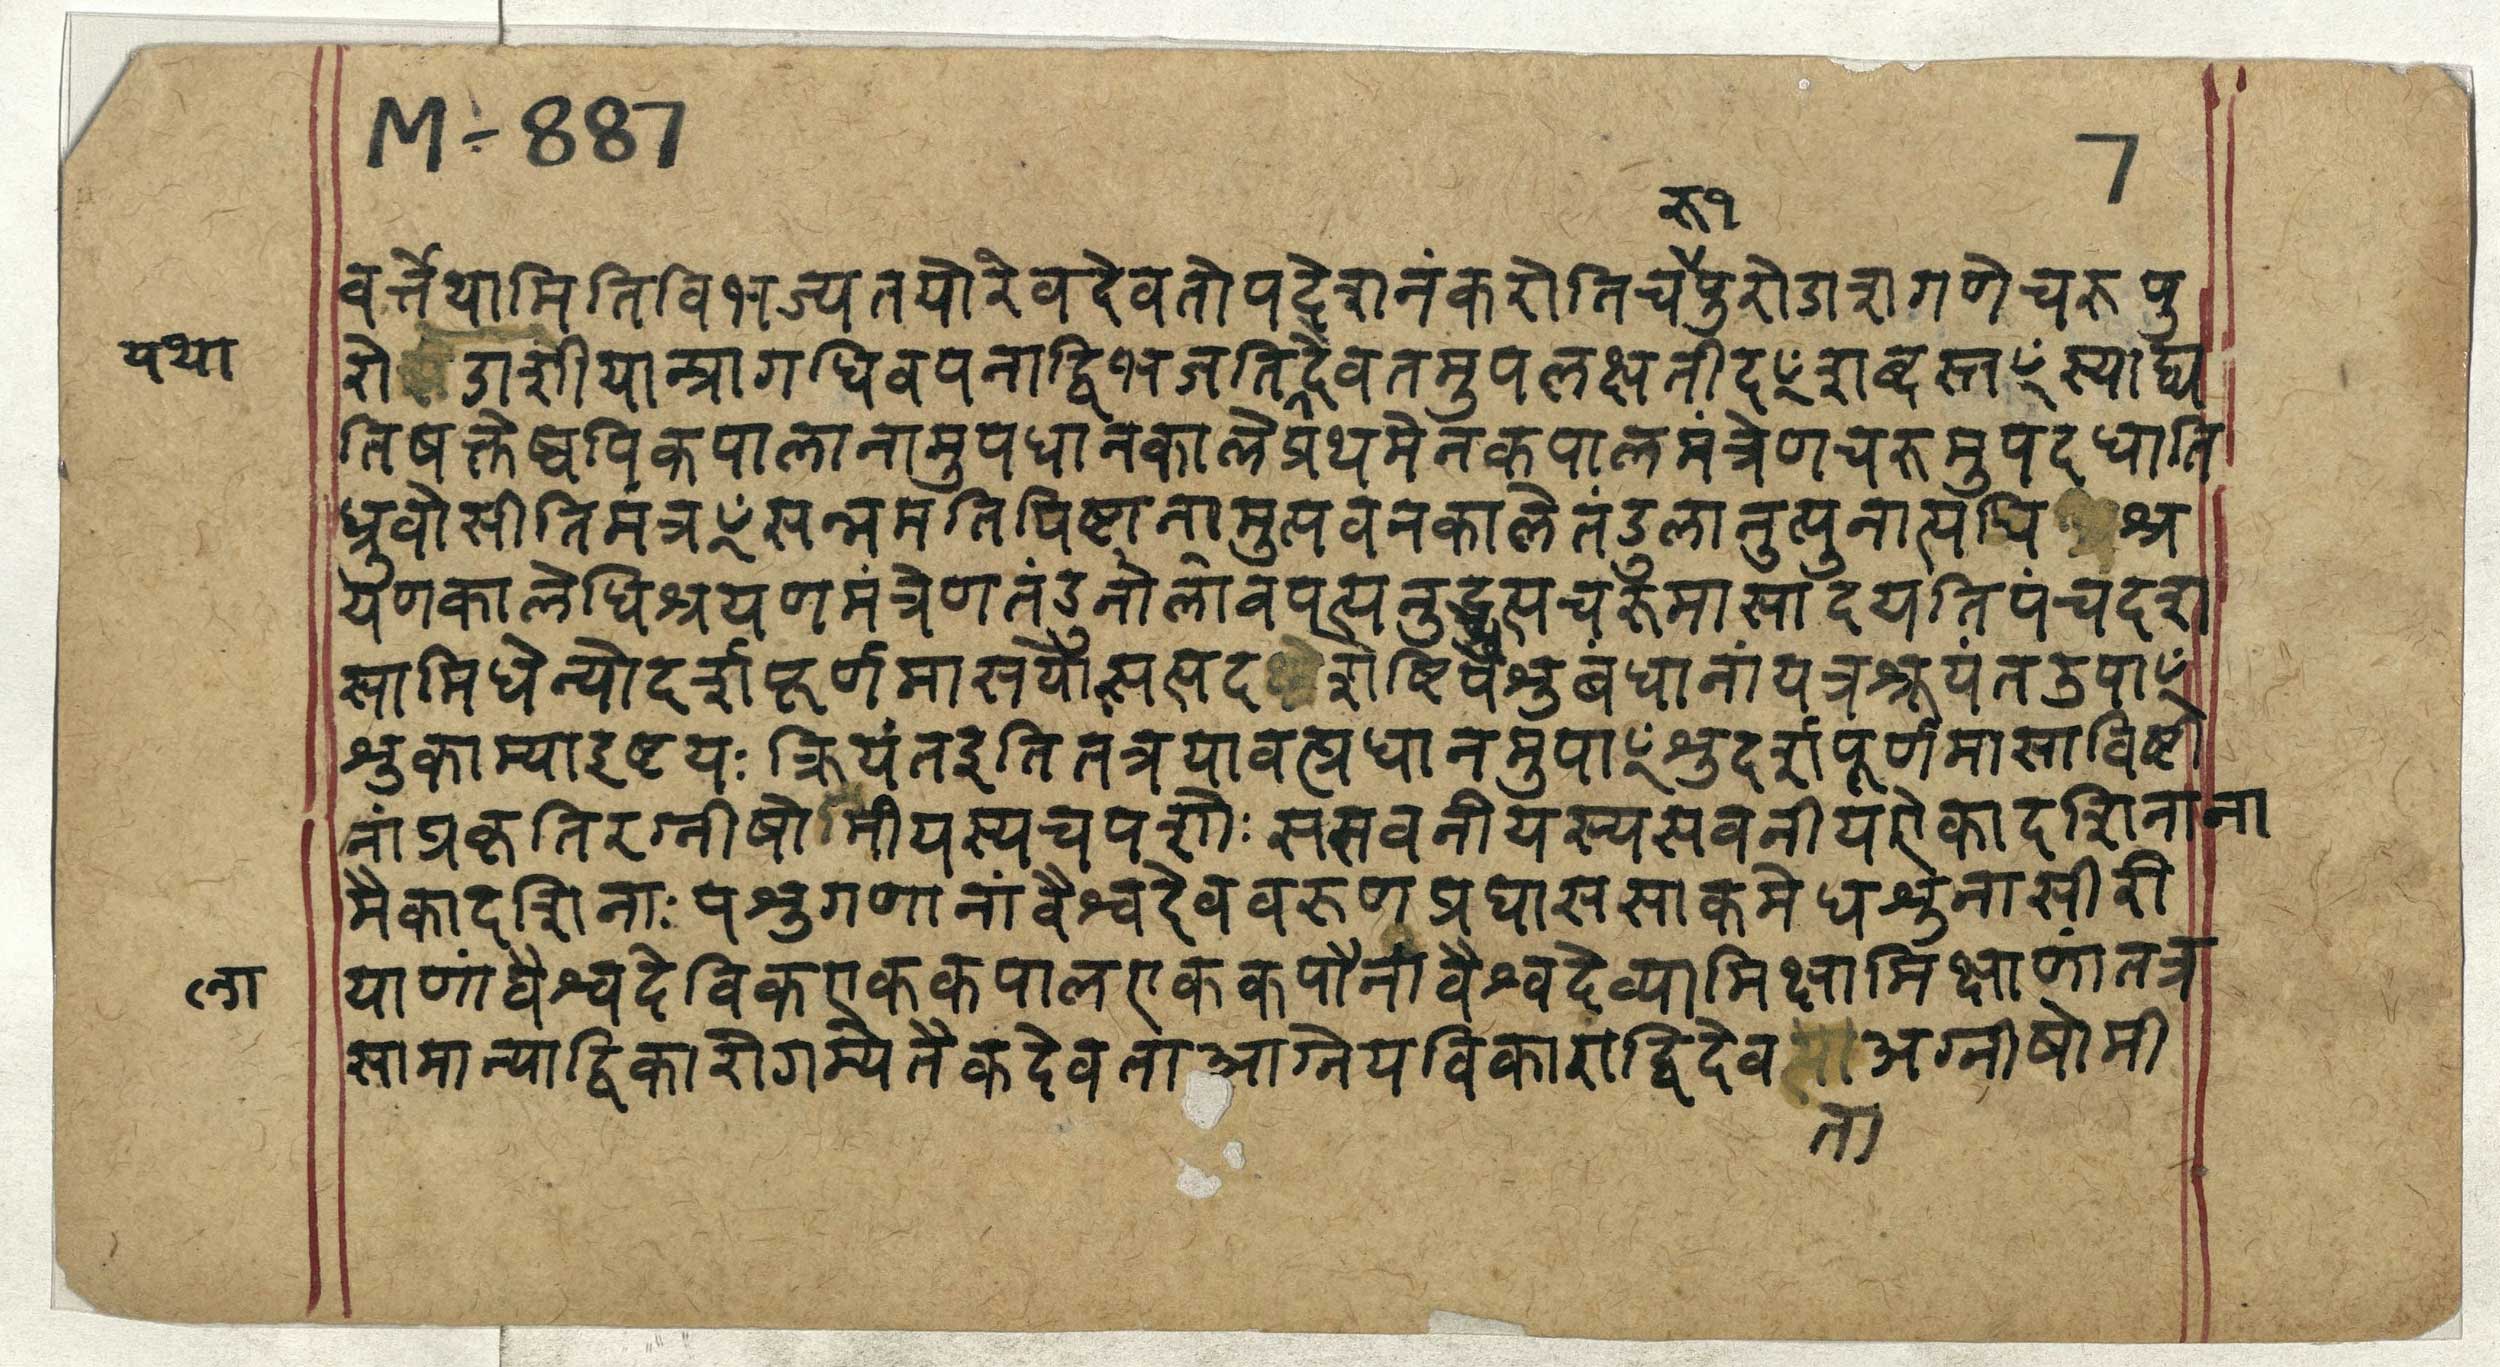 M-887
7
रू१
वर्त्तेथामितिविभज्यतयोरेवदेवतोपदेशनंकरोतिचपुरोडाशगणेचरुपु
यथा
रोडाशीयान्प्रागधिवपनाद्विभजतिदैवतमुपलक्षतीदꣳशब्दस्तꣳस्याद्य
तिषक्तेष्वपिकपालानामुपधानकालेप्रथमेनकपालमंत्रेणचरुमुपदधाति
ध्रुवोसीतिमंत्रꣳसन्नमतिपिष्टानामुत्पवनकालेतंडुलानुत्पुनात्यधिश्र
यणकालेधिश्रयणमंत्रेणतंडुनालावपत्यनुद्धृत्यचरुमासादयतिपंचदश
सामिधेन्योदर्शपूर्णमासयोःसप्तदशेष्टिपश्रुबंधानांयत्रश्रूयंतउपाꣳ
श्रुकाम्याइष्टयःक्रियंतइतितत्रयावत्प्रधानमुपाꣳश्रुदर्शपूर्णमासाविष्टी
नांप्रकृतिरग्नीषोमीयस्यचपशोःससवनीयस्यसवनीयऐकादशिनाना
मैकादशिनाःपश्रुगणानांवैश्वदेववरुणप्रघाससाकमेधश्रुनासीरी
लो
याणांवैश्वदेविकएककपालएककपानांवैश्वदेव्यामिक्षामिक्षाणांतत्र
सामान्याद्विकारोगम्येतैकदेवताआग्नेयविकाराद्विदेवअग्नीषोमी
ता